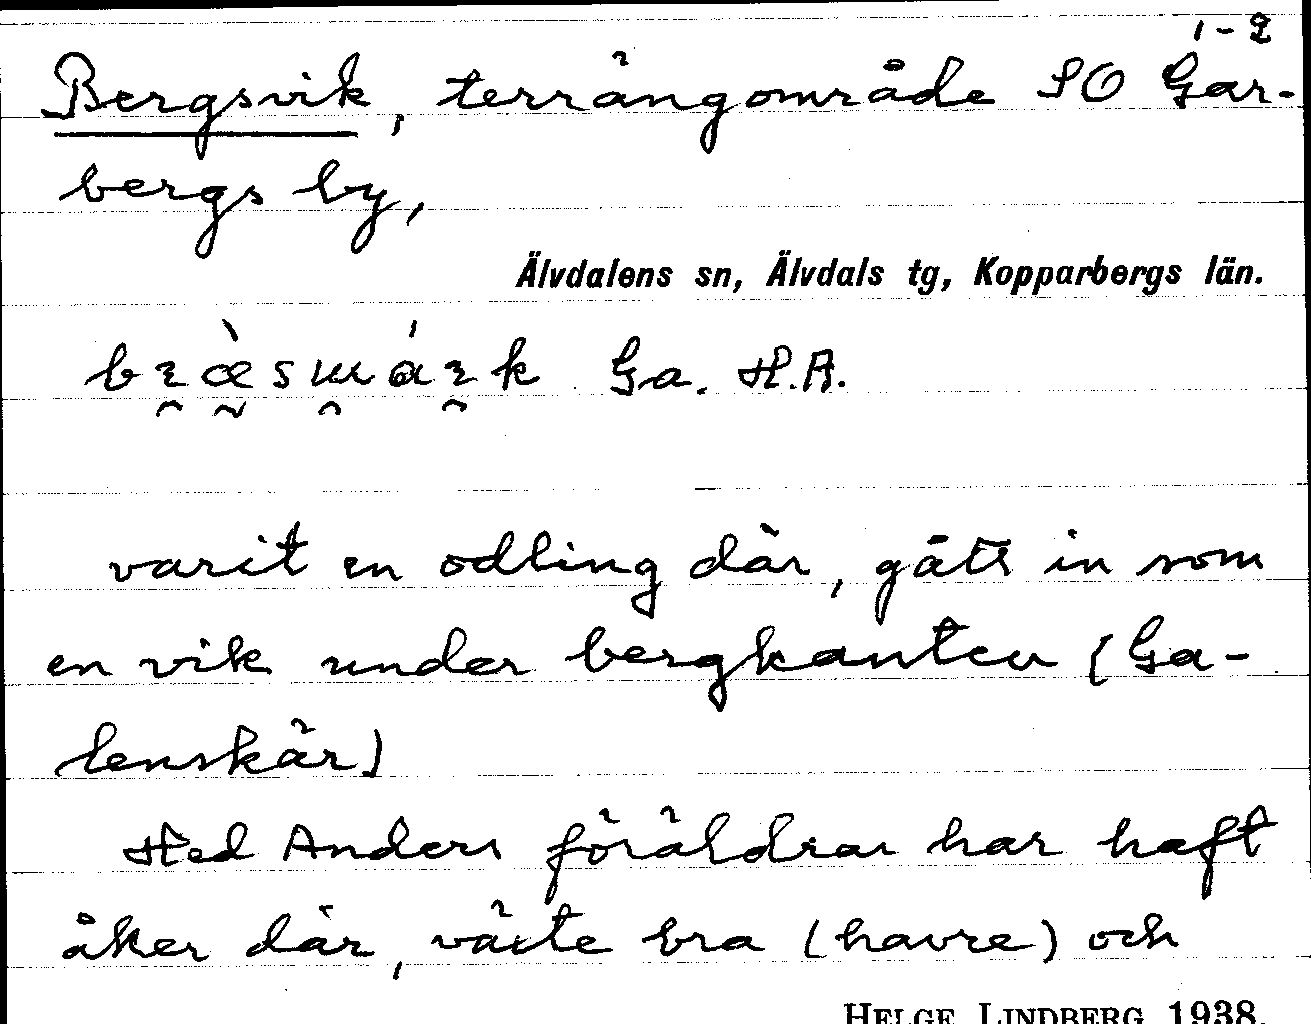 1-2
Bergsvik, terrängområde SO Gar-
bergs by,
Älvdalens sn, Älvdals tg, Kopparbergs län.
Ga. H.A.
varit en odling där, gått in som
en vik under bergkanten (Ga-
lenskär)
Hed Anders föräldrar har haft
åker där, växte bra (havre) och
HELGE LINDBERG 1938.